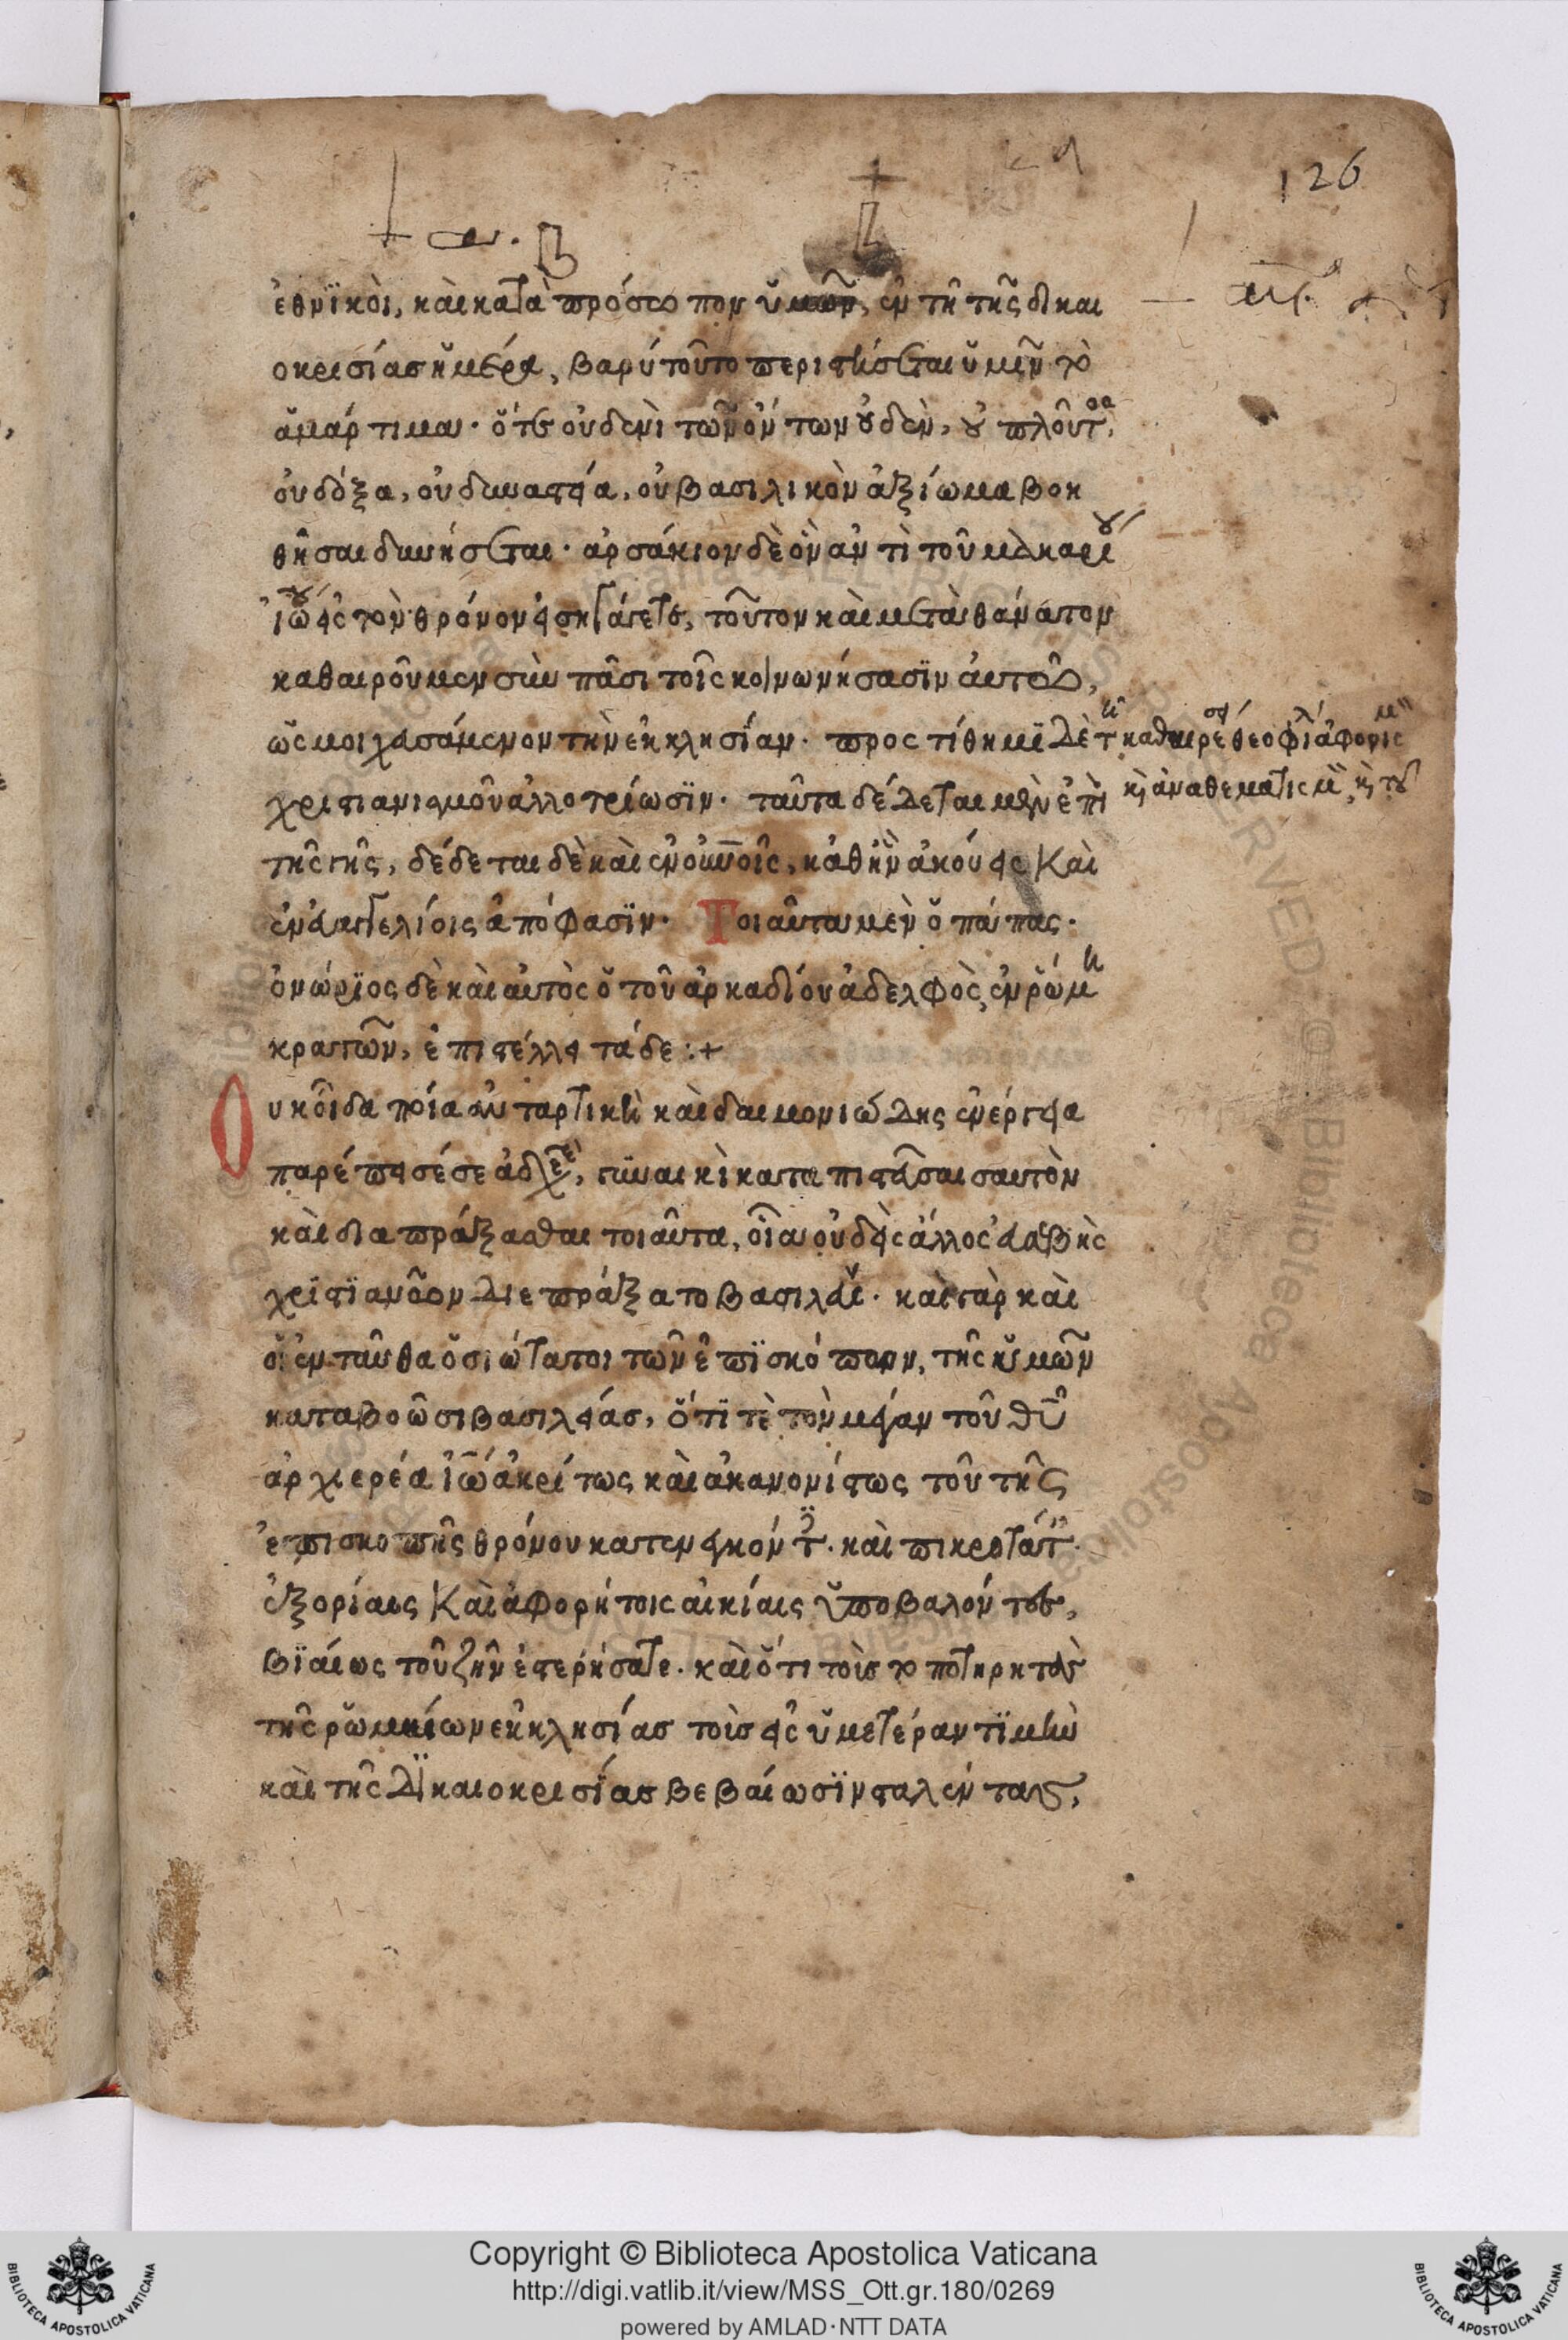 126
ἐθνϊκοὶ, καὶ κατὰ πρόσωπον ὑμῶν, ἐν τῆ τῆς δικαι
οκρισίας ἡμέρα, βαρύ τοῦτο περιστήσεται ὑμῖν τὸ
ἁμάρτημα· ὅτε οὐδενὶ τῶν ὄντων οὐδὲν, οὐ πλοῦτος,
οὐ δόξα, οὐ δυναστεία, οὐ βασιλικὸν ἀξίωμα βοη
θῆσαι δυνήσεται· ἀρσάκιον δὲ ὃν ἀντὶ τοῦ μακαρίου
ἰω εἰς τὸν θρόνον εἰσηγάγετε, τοῦτον καὶ μετὰ θάνατον
καθαιροῦμεν σὺν πᾶσι τοῖς κοινωνήσασϊν αὐτοῦ,
ὡς μοιχασάμενον τὴν ἐκκλησίαν· προστίθημϊ δὲ τῆ καθαιρέσει θεοφίλ ἀφορισμ
χριστιανισμοῦ ἀλλοτρίωσϊν· ταῦτα δέδεται μὲν ἐπὶ κ ἀναθεματισμ, κ τοῦ
τῆς γῆς, δέδεται δὲ καὶ ἐν οὐνοῖς, καθ ἣν ἀκούεις καὶ
ἐν εὐαγγελίοις ἀπόφασϊν· Τοιαῦτα μὲν ὁ πάπας·
ὀνώριος δὲ καὶ αὐτὸς ὁ τοῦ ἀρκαδίου ἀδελφὸς, ἐν ῥώμη
κρατῶν, ἐπιστέλλει τάδε :+
Ουκ οἶδα ποία ἀνταρτικὴ καὶ δαιμονιώδης ἐνέργεια
παρέπεισέ σε ἀδλφέ, γυναικὶ καταπιστεῦσαι σαυτὸν
καὶ διαπράξασθαι τοιαῦτα, οἷα οὐδεὶς ἄλλος εὐσεβὴς
χριστϊανῶν διεπράξατο βασιλεύς· καὶ γὰρ καὶ
οἱ ἐνταῦθα ὁσιώτατοι τῶν ἐπϊσκόπων, τῆς ἡμῶν
καταβοῶσι βασιλείας, ὅτϊ τὲ τὸν μέγαν τοῦ θυ
ἀρχιερέα ἰω ἀκρίτως καὶ ἀκανονίστως τοῦ τῆς
ἐπισκοπῆς θρόνου κατενεγκόντ· καὶ πικροτάτ
ἐξορίαις καὶ ἀφορήτοις αἰκίαις ὑποβαλόντες,
βϊαίως τοῦ ζῆν ἐστερήσατε· καὶ ὅτι τοὺς τοποτηρητὰς
τῆς ῥωμαίων ἐκκλησίας τοὺς εἰς ὑμετέραν τϊμὴν
καὶ τῆς δϊκαιοκρισίας βεβαίωσϊν σταλέντας,
Copyright © Biblioteca Apostolica Vaticana
http://digi.vatlib.it/view/MSS_Ott.gr.180/0269
powered by AMLAD·NTT DATA
BIBLIOTECA APOSTOLICA VATICANA
BIBLIOTECA APOSTOLICA VATICANA